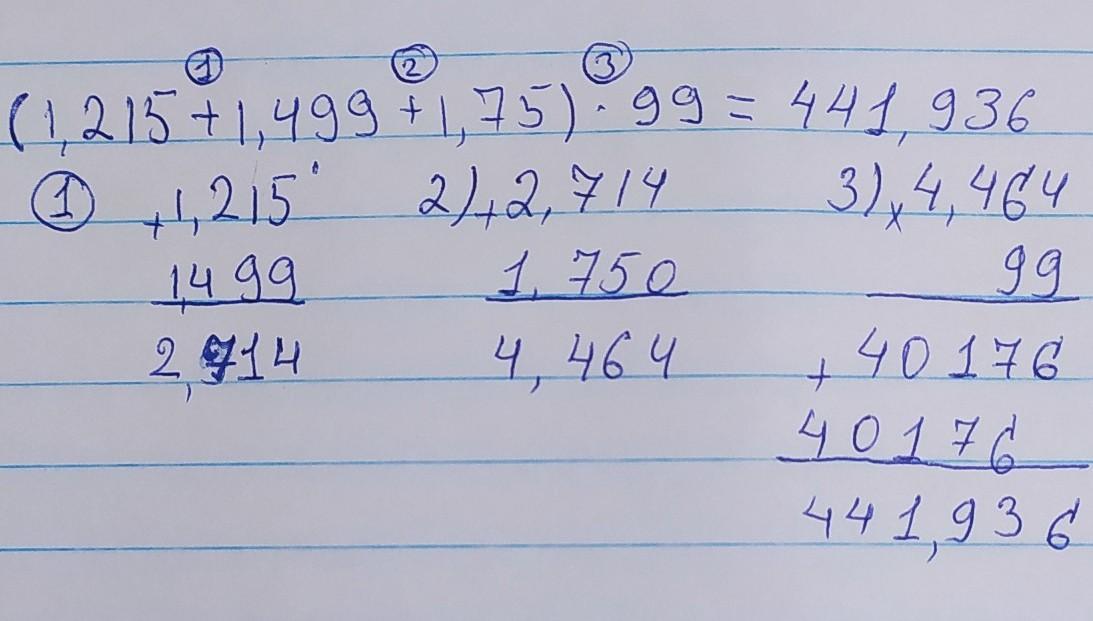 ① ② ③
(1,215+1,499+1,75)·99=441,936
① +1,215 2)+2,714 3)×4,464
1,499 1,750 99
2,714 4,464 +40176
40176
441,936